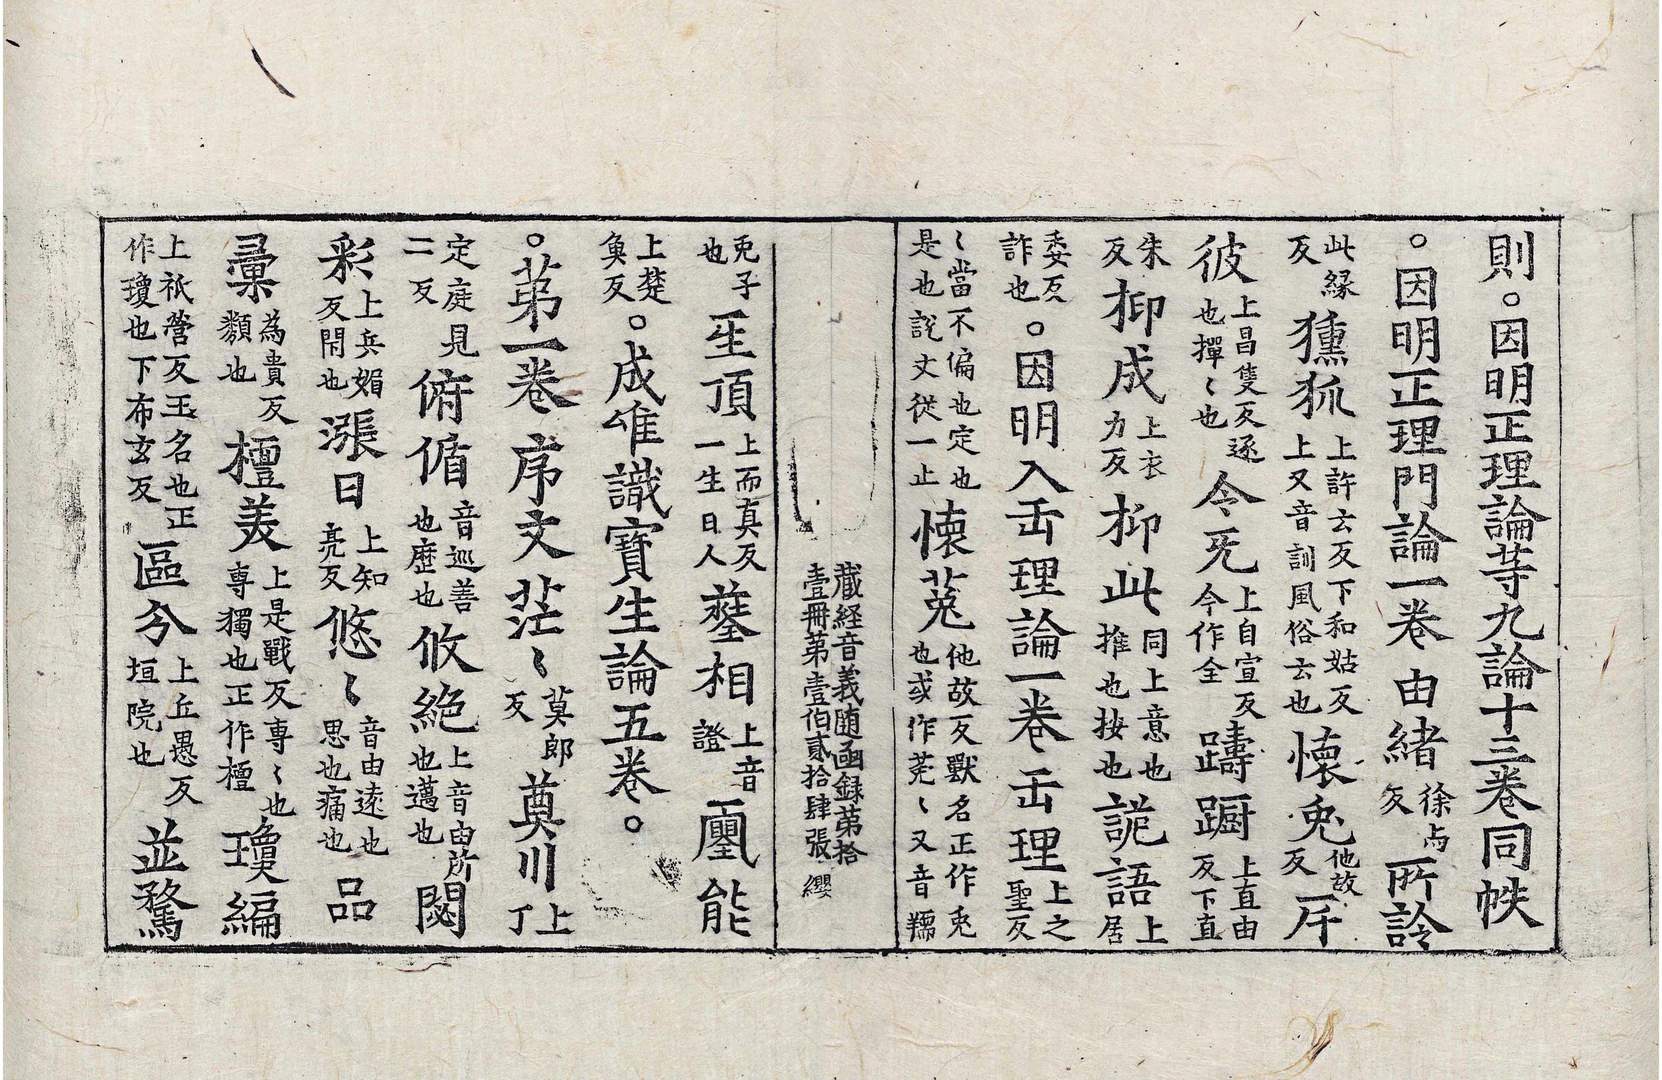 則。因明正理論等九論十三卷同帙
。因明正理門論一卷 由緒徐与反 所詅
此縁反 獯狐上許云反下和姑反上又音訓風俗云也 懷兎他故反 斥
彼上昌隻反逐也撣〻也 令旡上自宣反今作全 躊躕上直由反下直
朱反 抑成上衣力反 抑此同上意也推也按也 詭語上居
委反詐也 。因明入正理論一卷 正理上之聖反
〻當不偏也定也是也說文從一止 懐菟他故反獸名正作兎也或作莵〻又音𦍕
藏経音義随函録第拾
壹冊第壹伯貳拾肆張 纓
兎子也 𤯔頂上而真反一生日人 蕯相上音證 𤫊能
上楚奐反 。成唯識寶生論五卷。
。苐一卷 序文 茫〻莫郎反 奠川上丁
定庭見二反 俯偱音巡善也歷也 攸絶上音由所也邁也 閟
彩上兵媚反閇也 漲日上知亮反 悠〻音由逺也思也痛也 品
彙為貴反類也 檀美上是戰反専〻也専獨也正作檀 瓊編
上祇營反玉名也正作瓊也下布玄反 區分上丘愚反垣院也 並騖